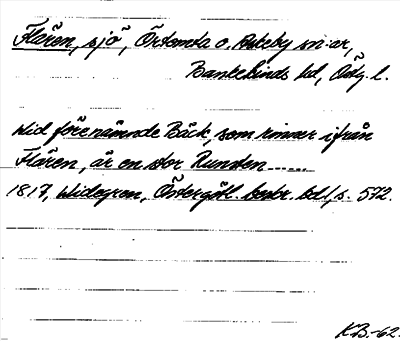 Flären, sjö, Örtomta o. Askeby sn:ar,
Bankekinds hd, Ög. l.
Wid förenämnde Bäck, som rinner ifrån
Flären, är en stor Runsten......
1817, Widegren, Östergötl. beskr. bd 1, s. 572.
K.B.-62.